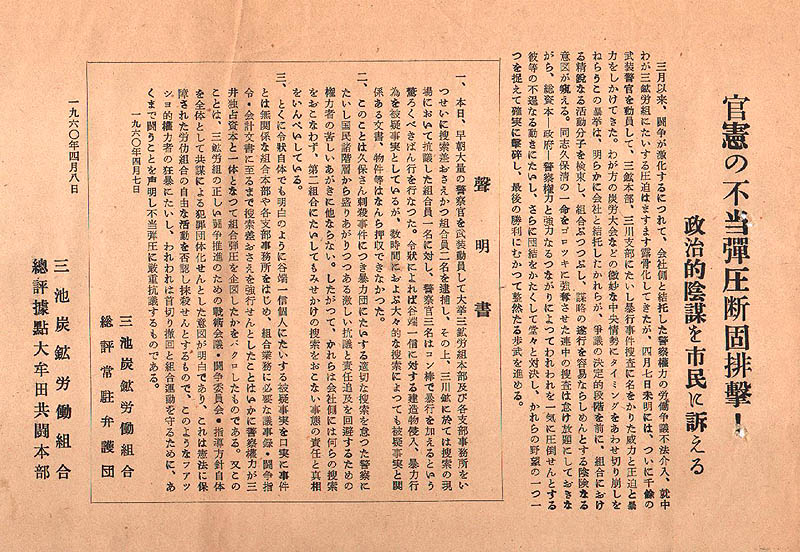 官憲の不当彈圧断固排撃!
政治的陰謀を市民に訴える
三月以来、闘争が激化するにつれて、会社側と結託した警察権力の労働争議不法介入、就中
わが三鉱労組にたいする圧迫はますます露骨化してきたが、四月七日未明には、ついに千余の
武装警官を動員して、三鉱本部、三川支部にたいし暴行事件捜査に名をかりた威力と圧迫と暴
力をしかけてきた。わが方の炭労大会などの微妙な中央情勢にタイミングをあわせ切り崩しを
ねらうこの暴挙は、明らかに会社と結託したかれらが、争議の決定的段階を前に、組合におけ
る精鋭なる活動分子を検束し、組合ぶつつぶし、謀略の遂行を容易ならしめんとする陰険なる
意図が窺える。同志久保清の一命をゴロツキに強奪させた連中の捜査は怠け放題にしておきな
がら、総資本―政府―警察権力と強力なるつながりによつてわれわれを一気に圧倒せんとする
彼等の不逞なる動きにたいし、さらに団結をかたくして堂々と対決し、かれらの野望の一つ一
つを捉えて確実に撃砕し、最後の勝利にむかつて整然たる歩武を進める。
聲明書
一、本日、早朝大量の警察官を武装動員して大挙三鉱労組本部及び各支部事務所をい
つせいに捜索差おさえかつ組合員二名を逮捕し、その上、三川鉱に於ては捜索の現
場において抗議した組合員一名に対し、警察官三名はコン棒で暴行を加えるという
驚ろくべき蛮行を行なつた。令状によれば谷端一信に対する建造物侵入、暴力行
為を被疑事実としているが、数時間におよぶ大々的な捜索によつても被疑事実と関
係ある文書、物件等はなんら押収できなかつた。
二、このことは久保さん刺殺事件につき暴力団にたいする適切な捜索を怠つた警察に
たいし国民諸階層から盛りあがりつつある激しい抗議と責任追及を回避するための
権力者の苦しいあがきに他ならない。したがつて、かれらは会社側には何らの捜索
をおこなわず、第二組合にたいしてもみせかけの捜索をおこない事態の責任と真相
をいんぺいしている。
三、とくに令状自体でも明白のように谷端一信個人にたいする被疑事実を口実に事件
とは無関係な組合本部や各支部事務所をはじめ、組合業務に必要な議事録・闘争指
令・会計文書に至るまで捜索差おさえを強行せんとしたことはいかに警察権力が三
井独占資本と一体となつて組合弾圧を企図したかをバクロしたものである。又この
ことは、三鉱労組の正しい闘争推進のための戦術会議・闘争委員会・指導方針自体
を全体として共謀による犯罪団体化せんとした意図が明白であり、これは憲法に保
障された労仂組合の自由な活動を否認し抹殺せんとするもので、このようなフアツ
シヨ的権力者の狂暴にたいし、われわれは首切り撤回と組合運動を守るために、あ
くまで闘うことを声明し不当弾圧に厳重抗議するものである。
一九六〇年四月七日
三池炭鉱労働組合
総評常駐弁護団
一九六〇年四月八日
三池炭鉱労働組合
總評據點大牟田共闘本部